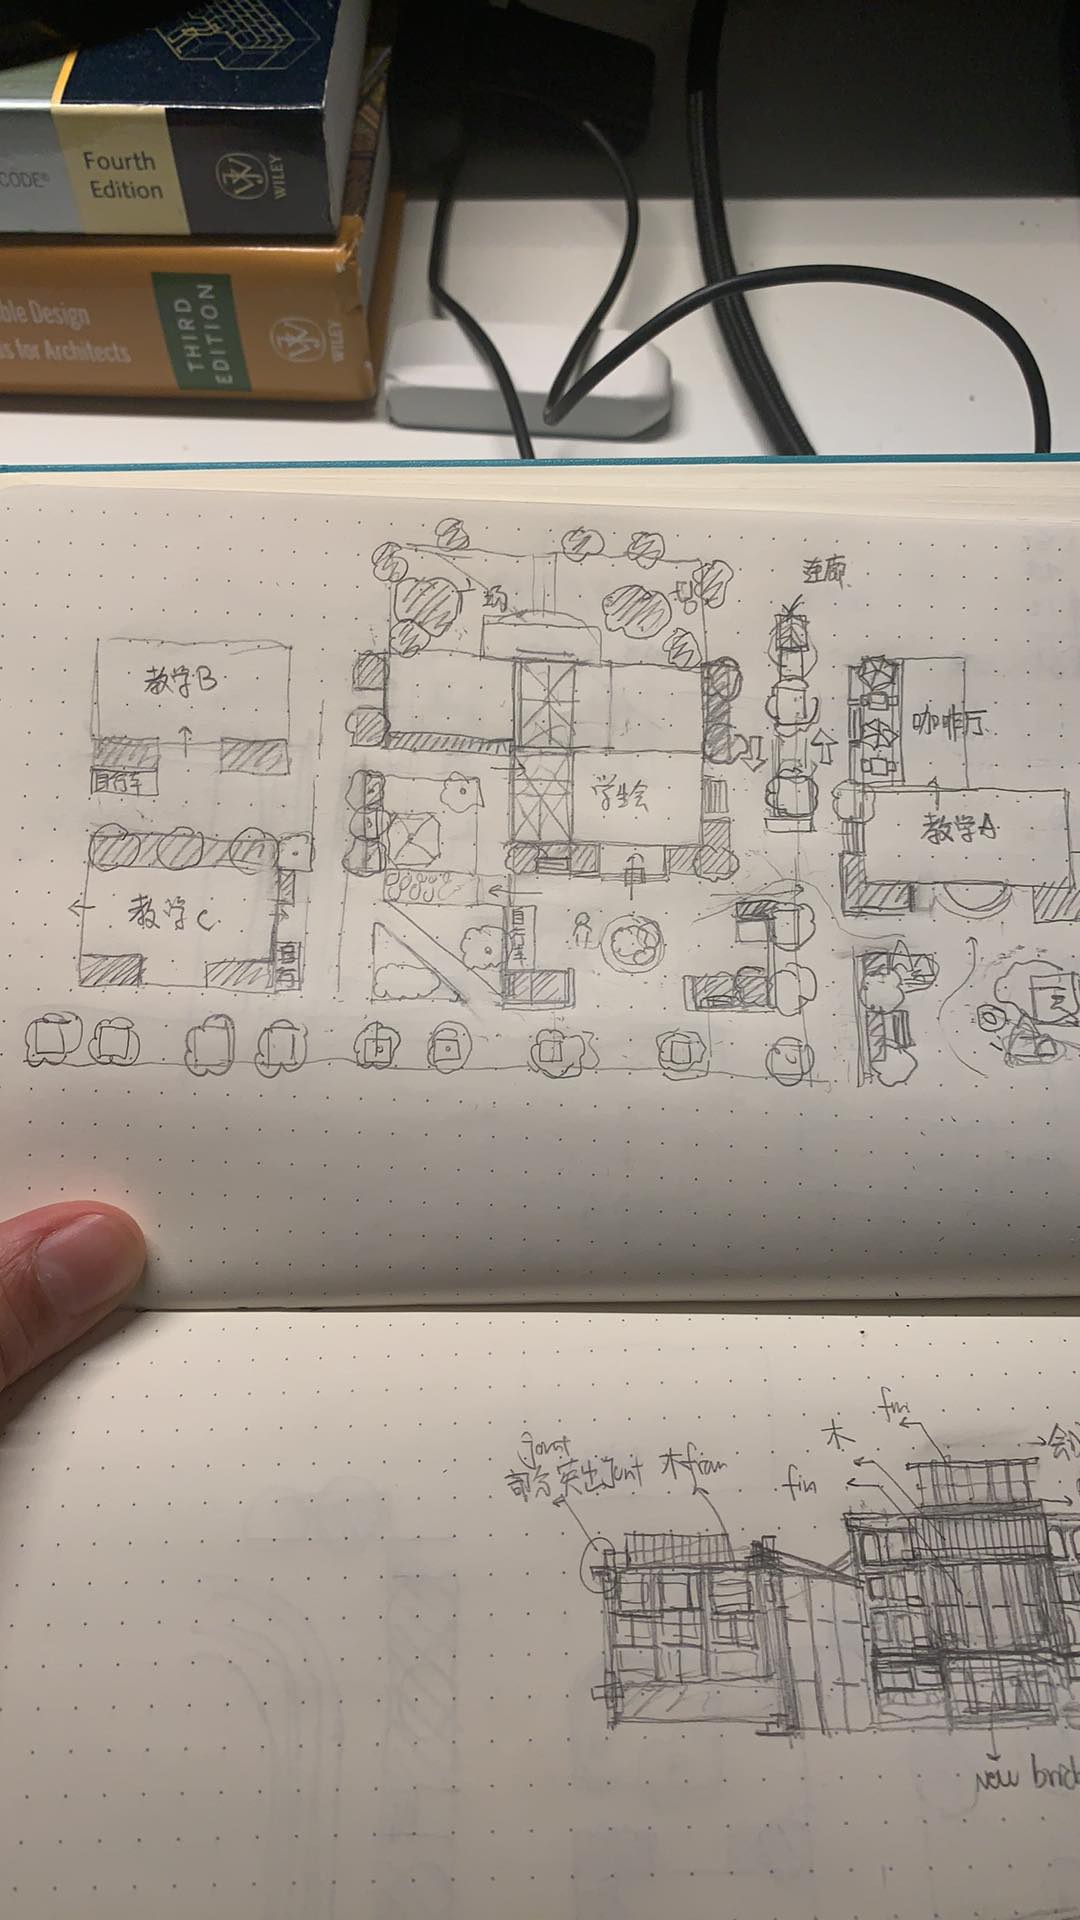 CODE®
Fourth
Edition
WILEY
ble Design
s for Architects
THIRD
EDITION
WILEY
连廊
教学B
自行车
咖啡厅
学生会
教学A
教学C
自行车
joint
部分突出joint
木fram
fin
木
fin
new brick